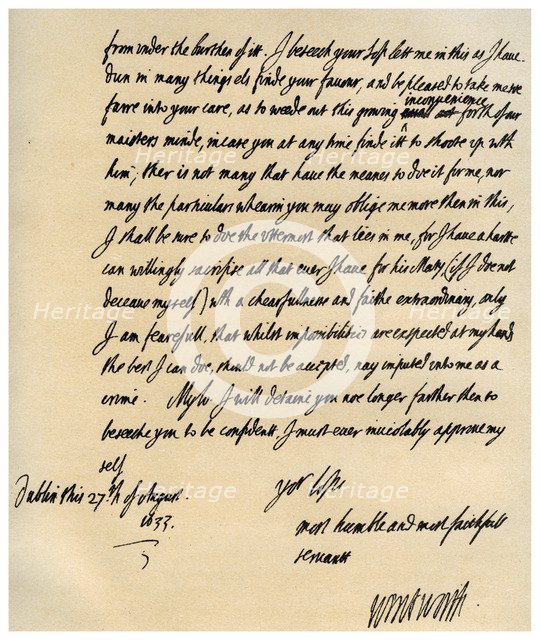 from under the burthen of itt. I beseech your Lopp lett me in this as I have
dun in many things els finde your favour, and be pleased to take me soe
farre into your care, as to weede out this growing inconvenience forth of our
maisters minde, incase you at any time finde itt to shoote up with
him; ther is not many that have the means to doe it for me, nor
many the particulars whearin you may oblige me more then in this,
I shall be sure to doe the uttermost that lies in me, for I have a harte
can willingly sacrifise all that ever I have for his Maty (if I doe not
deceave myself) with a chearfullness and faithe extraordinary, only
I am fearefull, that whilst impossibilities are expected at my hands
the best I can doe, should not be accepted, nay imputed unto me as a
crime. Mylo: I will detaine you noe longer farther then to
beseeche you to be confident, I must ever inviolably approve my
self
Dublin this 27th of August
1633.
your Lopps
most humble and most faithfull
servante
Wentworth.
Heritage
Heritage
Heritage
Heritage
Heritage
Heritage
C